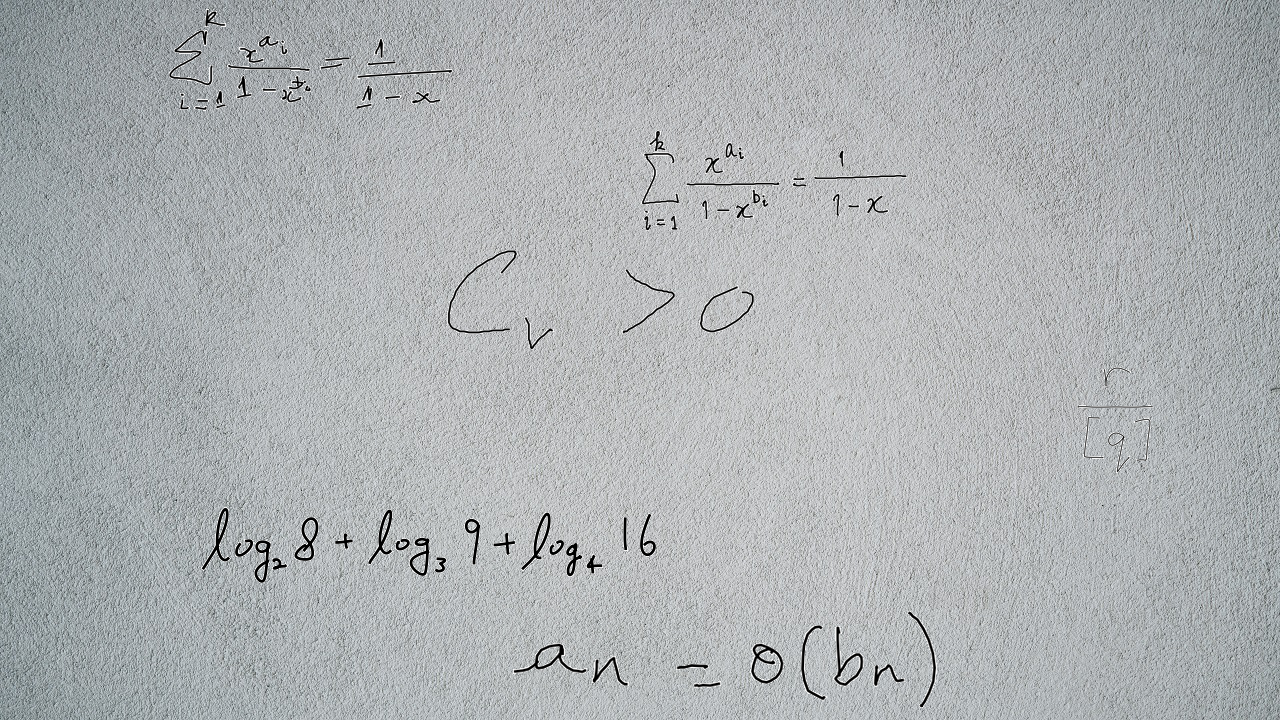 \sum_{i=1}^{k} \frac{x^{a_i}}{1-x^{b_i}} = \frac{1}{1-x}
\sum_{i=1}^{k} \frac{x^{a_i}}{1-x^{b_i}} = \frac{1}{1-x}
C_v > 0
\frac{r}{[q]}
\log_2 8 + \log_3 9 + \log_4 16
a_n = o(b_n)